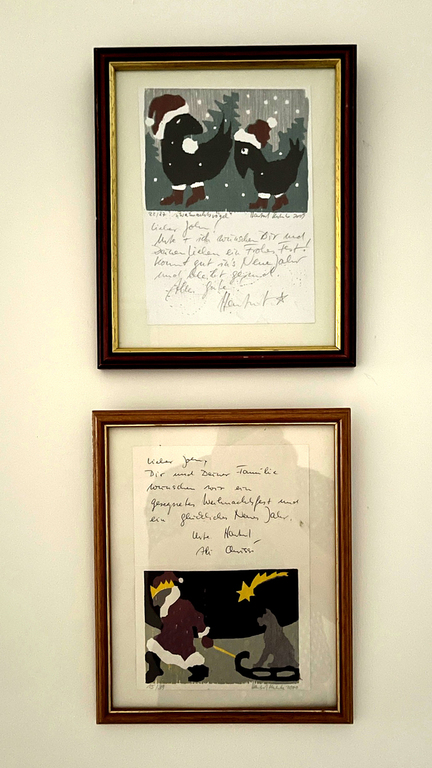 "Weihnachtsvögel"
Lieber John,
Ute + ich wünschen Dir und
Deinen Lieben ein Frohes Fest!
Kommt gut in's Neue Jahr
und bleibt gesund.
Alles Gute
Lieber John,
Dir und Deiner Familie
wünschen wir ein
gesegnetes Weihnachtsfest und
ein glückliches Neues Jahr.
Ute